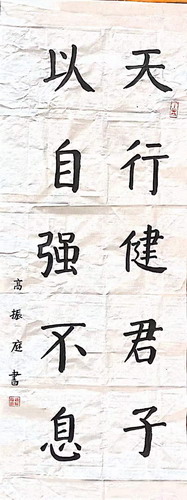 天行健君子
以自强不息
高振庭書